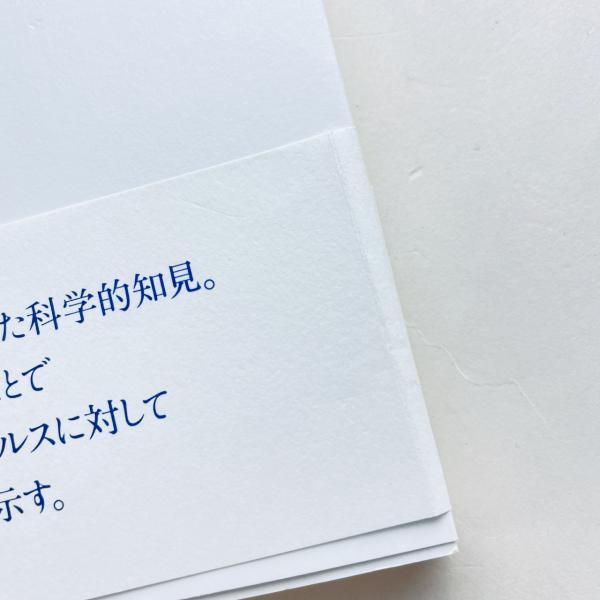 た科学的知見。
とで
ルスに対して
示す。